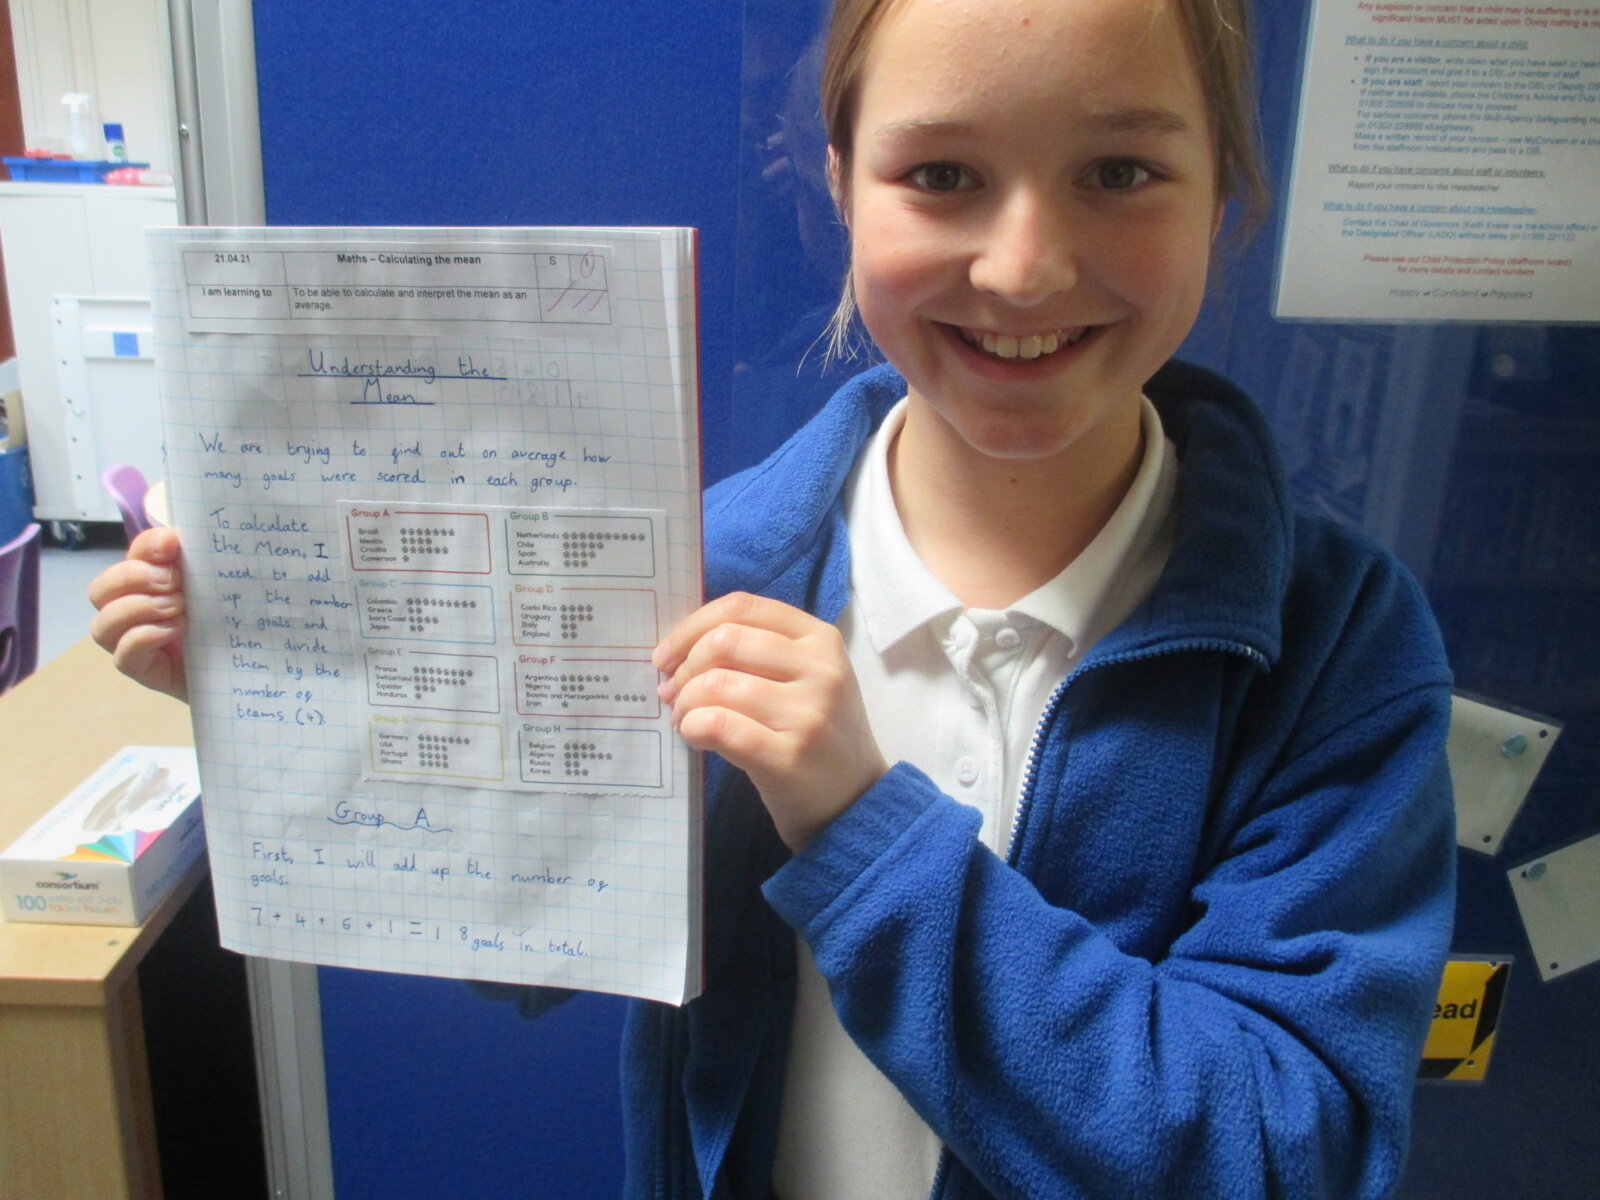 21.04.21
Maths – Calculating the mean
S
I am learning to
To be able to calculate and interpret the mean as an
average.
Understanding the
Mean
We are trying to find out on average how
many goals were scored in each group.
To calculate
the Mean, I
need to add
up the number
of goals and
then divide
them by the
number of
teams (4).
Group A
Brazil
Mexico
Croatia
Cameroon
Group B
Netherlands
Chile
Spain
Australia
Group C
Colombia
Greece
Ivory Coast
Japan
Group D
Costa Rica
Uruguay
Italy
England
Group E
France
Switzerland
Equador
Honduras
Group F
Argentina
Nigeria
Bosnia and Herzegovinia
Iran
Group G
Germany
USA
Portugal
Ghana
Group H
Belgium
Algeria
Russia
Korea
Group A
First, I will add up the number of
goals.
7 + 4 + 6 + 1 = 1 8 goals in total.
consortium
100 extra soft 2-ply
facial tissues
Any suspicion or concern that a child may be suffering or
significant harm MUST be acted upon. Doing nothing is
What to do if you have a concern about a child:
• If you are a visitor: write down what you have seen or
sign the account and give it to a DSL or member of staff.
• If you are staff: report your concern to the DSL or Deputy
If neither are available, phone the Children's Advice and Duty
to discuss how to proceed.
For serious concerns: phone the Multi-Agency Safeguarding
on straightaway.
Make a written record of your concern – use MyConcern or a
from the staffroom noticeboard and pass to a DSL.
What to do if you have concerns about staff or volunteers.
Report your concern to the Headteacher
What to do if you have a concern about the Headteacher.
Contact the Chair of Governors (Keith Evans via the school office) or
the Designated Officer (LADO) without delay on 01305 221122
Please see our Child Protection Policy (staffroom board)
for more details and contact numbers
Happy Confident Prepared
ead